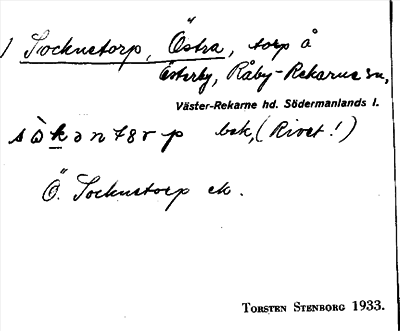 1 Socknetorp, Östra, torp å
Österby, Råby-Rekarne sn,
Väster-Rekarne hd. Södermanlands l.
bek, (Rivet!)
Ö. Socknetorp ek.
TORSTEN STENBORG 1933.